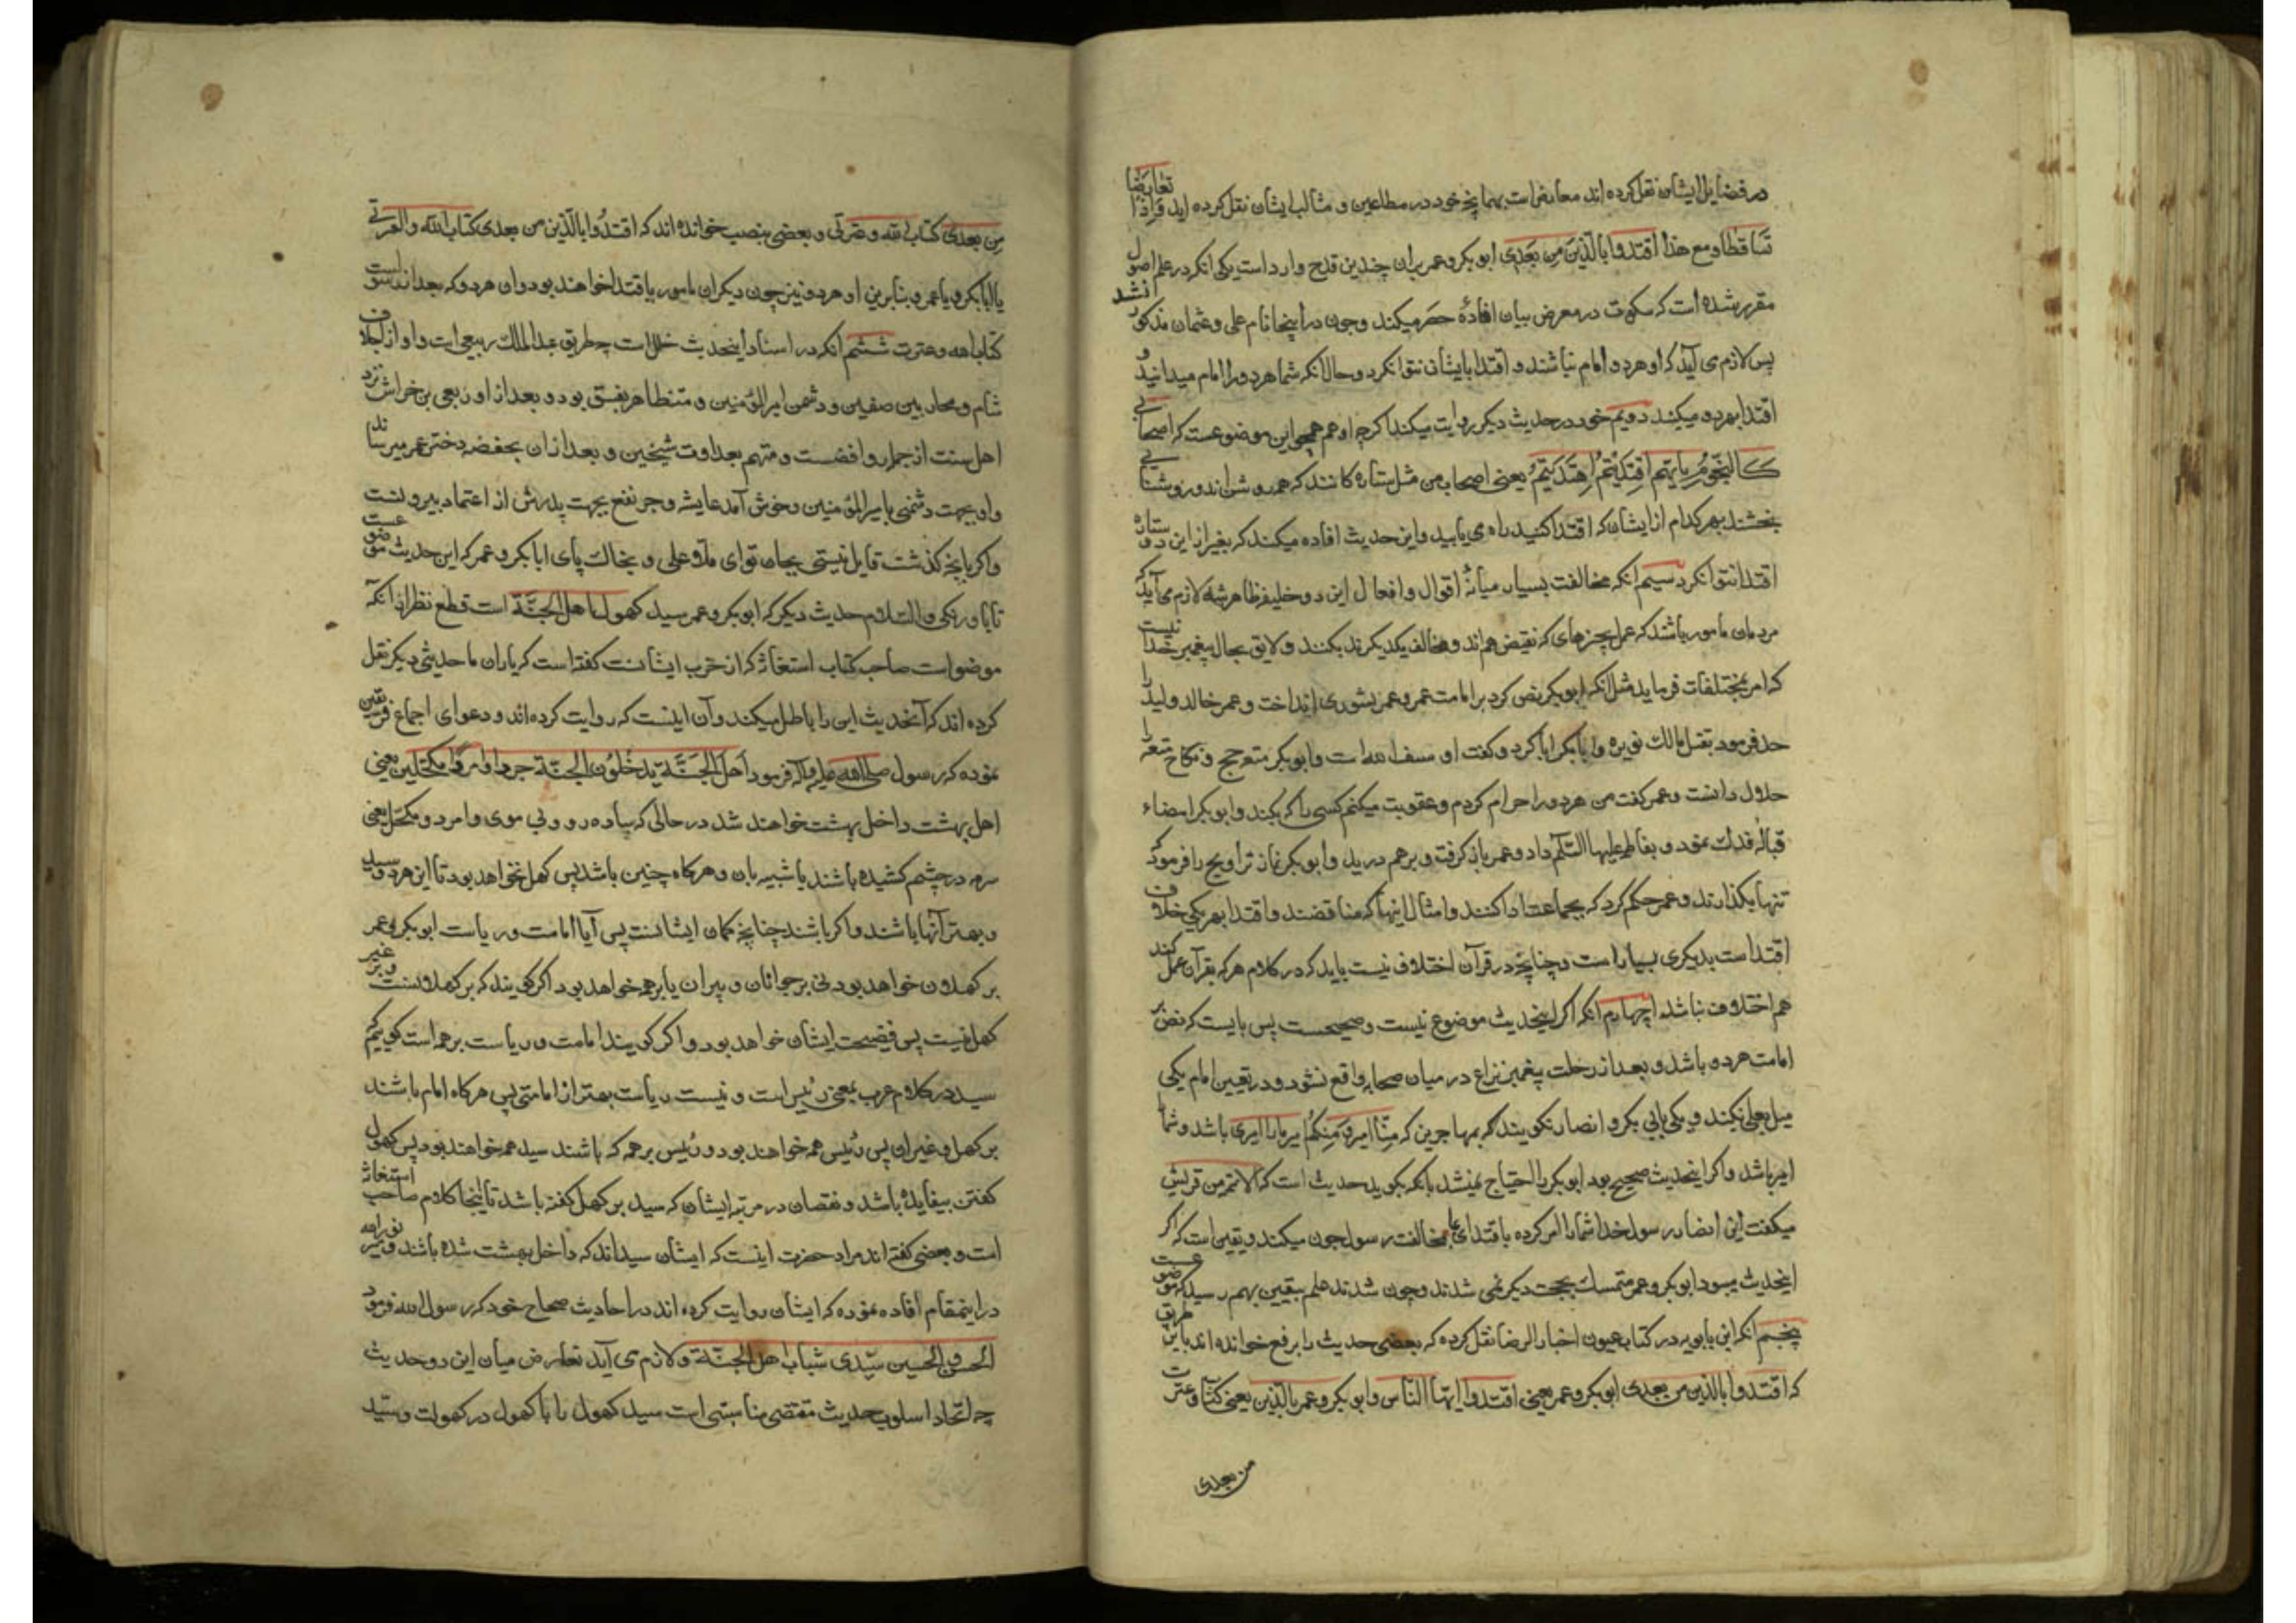 در فضایل ایشان نقل کرده اند معارض است بهمانچه خود در مطاعن و مثالب ایشان نقل کرده اید و اذا تعارضا
تساقطا و مع هذا اقتدوا بالذین من بعدی ابو بکر و عمر بران چندین قدح وارد است یکی انکه در علم اصول
مقرر شده است که سکوت در معرض بیان افادهٔ حصر میکند و چون در اینجا نام علی و عثمان مذکور نشد
پس لازم می آید که او هر دو امام نباشند و اقتدا بایشان نتوان کرد و حال آنکه شما هر دو را امام میدانید و
اقتدا بهر دو میکنید دویم خود در حدیث دیگر روایت میکند اگرچه او هم همچو این موضوعست که اصحابی
کالنجوم بایهم اقتدیتم اهتدیتم یعنی اصحاب من مثل ستاره کانند که همه روشن اند و روشنائی
بخشند بهر کدام از ایشان که اقتدا کنید راه می یابید و این حدیث افاده میکند که بغیر از این دو ستاره
اقتدا نتوان کرد سیم انکه مخالفت بسیار میانهٔ اقوال و افعال این دو خلیفه ظاهر شده لازم می آید که
مردمان مامور باشند که عمل بچیزهای که نقیض هم اند و مخالف یکدیگرند بکنند و لایق بحال پیغمبر خدا نیست
که امر بمختلفات فرماید مثل انکه ابو بکر نص کرد بر امامت عمر و عمر بشوری انداخت و عمر خالد ولید را
حد فرمود بقتل مالک نویره و ابا بکر ابا کرد و گفت او سیف الله است و ابو بکر متعه حج و نکاح متعه را
حلال دانست و عمر گفت من هر دو را حرام کردم و عقوبت میکنم کسی را که بکند و ابو بکر امضاء
قبالهٔ فدک نمود و بفاطمه علیها السلام داد و عمر باز گرفت و بر هم درید و ابو بکر نماز تراویح را فرمود که
تنها بگذارند و عمر حکم کرد که بجماعت ادا کنند و امثال اینها که مناقضند و اقتدا بهر یکی خلاف
اقتدا است بدیگری بسیار است و چنانچه در قرآن اختلاف نیست باید که در کلام هر که بقرآن عمل کند
هم اختلاف نباشد چهارم انکه اگر اینحدیث موضوع نیست و صحیحست پس بایست که نص بر
امامت هر دو باشد و بعد از رحلت پیغمبر نزاع در میان صحابه واقع نشود و در تعیین امام یکی
میل بعلی نکند و یکی بابی بکر و انصار نگویند که بمهاجرین که منا امیر و منکم امیر ما را امیری باشد و شما را
امیر باشد و اگر اینحدیث صحیح بود ابو بکر را احتیاج نمیشد بانکه بگوید حدیث است که الائمة من قریش
میگفت این انصار رسول خدا شما را امر کرده باقتدای ما مخالفت رسول چون میکنند و یقین است که اگر
اینحدیث میبود ابو بکر و عمر متمسک بحجت دیگر نمی شدند و چون شدند علم بیقین بهم رسید که موضوعست
پنجم انکه ابن بابویه در کتاب عیون اخبار الرضا نقل کرده که بعضی حدیث را برفع خوانده اند باین طریق
که اقتدوا بالذین من بعدی ابو بکر و عمر یعنی اقتدوا ایها الناس و ابو بکر و عمر بالذین یعنی کتاب و عترت
من بعدی
من بعدی کتاب الله و عترتی و بعضی بنصب خوانده اند که اقتدوا بالذین من بعدی کتاب الله والعترتی
یا ابا بکر و یا عمر و بنابرین او هر دو نیز چون دیگران مامور باقتدا خواهند بود و ان هر دو که بعد از رسول است
کتاب الله و عترت ششم انکه در اسناد اینحدیث خلل است چه طریق عبد الملک ربیعی است و او از اجلاف
شام و محاربین صفین و دشمن امیر المؤمنین و متظاهر بفسق بود و بعد از او ربعی بن خراش نزد
اهل سنت از جمله روافضست و متهم بعداوت شیخین و بعد از ان بحفصه دختر عمر میرسانند
و او بجهت دشمنی با امیر المؤمنین و خوش آمد عایشه و جر نفع بجهت پدرش از اعتماد بیرونست
و اگر بانچه گذشت قایل نیستی بجان تو ای ملا و علی و بخاک پای ابا بکر و عمر که این حدیث موضوعست
تا باور نکی والسلام حدیث دیگر که ابو بکر و عمر سید کهول اهل الجنة است قطع نظر از انکه
موضوع است صاحب کتاب استغاثه که از حزب ایشانست گفته است که یاران ما حدیثی دیگر نقل
کرده اند که آنحدیث این را باطل میکند و آن اینست که روایت کرده اند و دعوای اجماع فریقین
نموده که رسول صلی الله علیه و آله فرمود اهل الجنة یدخلون الجنة جردا و مردا مکحلین یعنی
اهل بهشت داخل بهشت خواهند شد در حالی که ساده رو و بی موی و امرد و مکحل یعنی
سرمه در چشم کشیده باشند یا شبیه بان و هرگاه چنین باشد پس کهل نخواهد بود تا این هر دو سید
و بهتر آنها باشند و اگر باشند چنانچه کمان ایشانست پس آیا امامت و ریاست ابو بکر و عمر
بر کهلان خواهد بود نی بر جوانان و پیران یا بر همه خواهد بود اگر گویند که بر کهلانست و بر غیر
کهل نیست پس فضیحت ایشان خواهد بود و اگر گویند امامت و ریاست بر همه است گوییم که
سید در کلام عرب بمعنی رئیس است و نیست ریاست بهتر از امامتی پس هرگاه امام باشند
بر کهل و غیر ان پس رئیس همه خواهند بود و رئیس بر همه که باشند سید همه خواهند بود پس کهول
گفتن بیفایده باشد و نقصان در مرتبه ایشان که سید بر کهل گفته باشد تا اینجا کلام صاحب استغاثه
است و بعضی گفته اند مراد حضرت اینست که ایشان سیداند که داخل بهشت شده باشند و میر نور الله
در اینمقام افاده نموده که ایشان روایت کرده اند در احادیث صحاح خود که رسول الله فرمود
الحسن و الحسین سیدی شباب اهل الجنة و لازم می آید تعارض میان این دو حدیث
چه اتحاد اسلوب حدیث مقتضی مناسبتی است سید کهول را با کهول در کهولت و سید